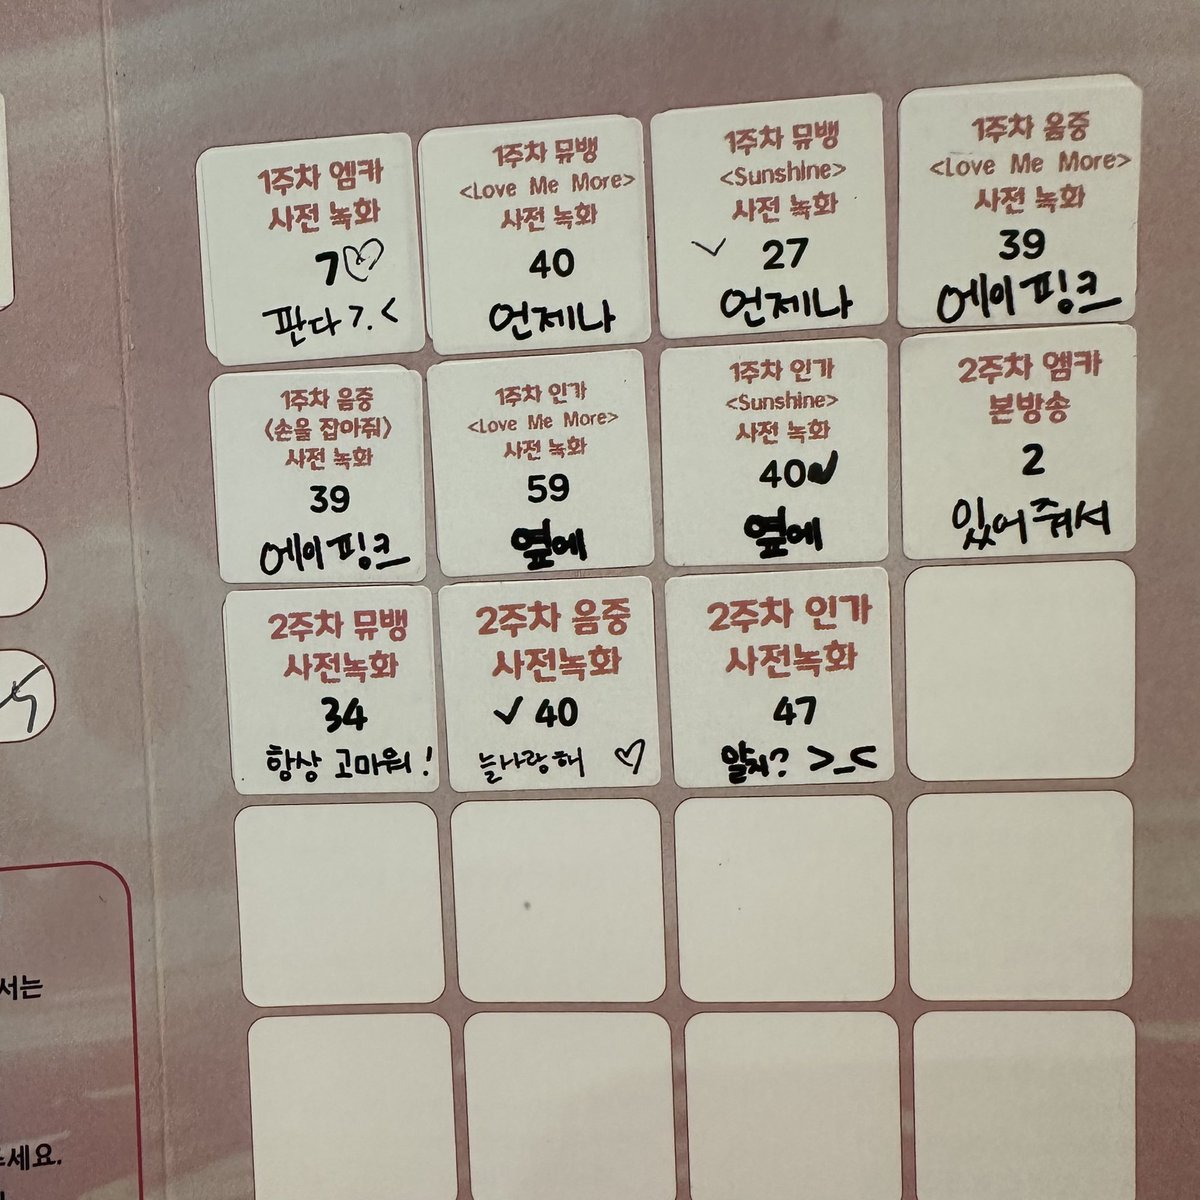 1주차 엠카
사전 녹화
7♡
판다 >.<
1주차 뮤뱅
<Love Me More>
사전 녹화
40
언제나
1주차 뮤뱅
<Sunshine>
사전 녹화
✓ 27
언제나
1주차 음중
<Love Me More>
사전 녹화
39
에이핑크
1주차 음중
<손을 잡아줘>
사전 녹화
39
에이핑크
1주차 인가
<Love Me More>
사전 녹화
59
옆에
1주차 인가
<Sunshine>
사전 녹화
40✓
옆에
2주차 엠카
본방송
2
있어줘서
2주차 뮤뱅
사전녹화
34
항상 고마워!
2주차 음중
사전녹화
✓ 40
늘 사랑해 ♡
2주차 인가
사전녹화
47
알지? >_<
서는
세요.